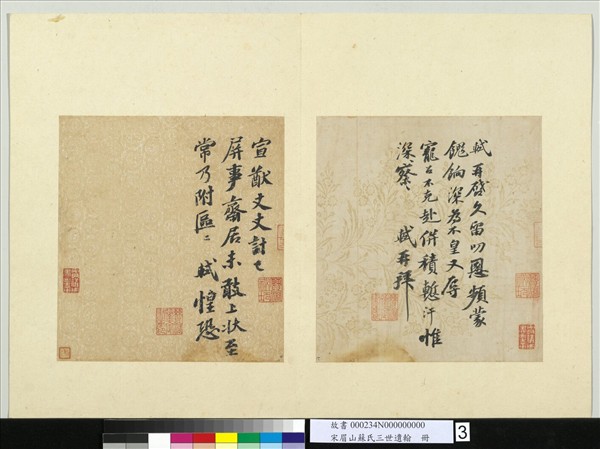 軾再啓久留叨恩頻蒙
餽餉深為不皇又辱
寵召不克赴併積慙汗惟
深察 軾再拜
宣猷丈丈計已
屏事齋居未敢上狀至
常乃附區〻 軾惶恐
故書 000234N000000000
宋眉山蘇氏三世遺翰 冊
3